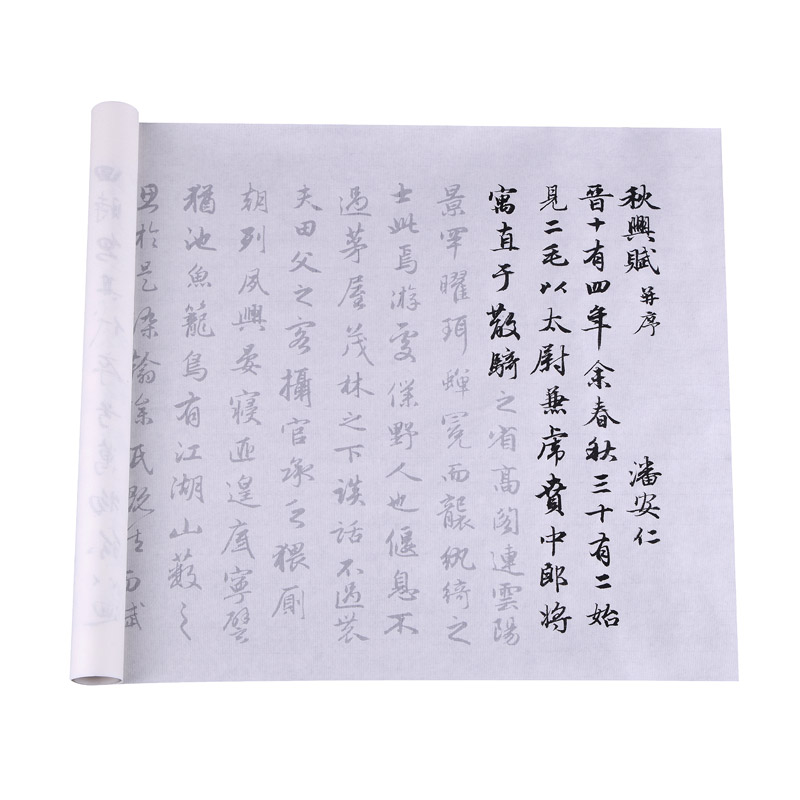 秋興賦 并序 潘安仁
晉十有四年余春秋三十有二始
見二毛以太尉兼虎賁中郎將
寓直于散騎之省高閣連雲陽
景罕曜珥蟬冕而襲紈綺之
士此焉游處僕野人也偃息不
過茅屋茂林之下談話不過農
夫田父之客攝官承乏猥廁
朝列夙興晏寢匪遑底寧譬
猶池魚籠鳥有江湖山藪之
思於是染翰而賦